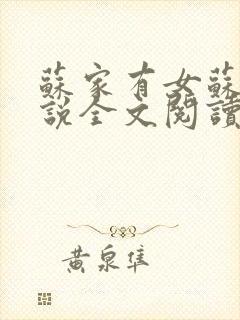 蘇家有女蘇
說全文閱讀
黃泉隼